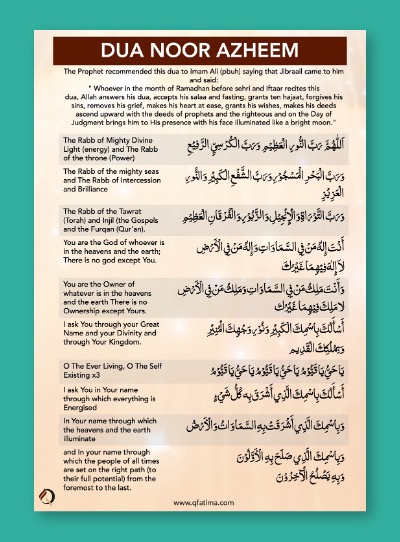 DUA NOOR AZHEEM
The Prophet recommended this dua to Imam Ali (pbuh) saying that Jibraail came to him
and said:
" Whoever in the month of Ramadhan before sehri and iftaar recites this
dua, Allah answers his dua, accepts his salaa and fasting, grants ten hajaat, forgives his
sins, removes his grief, makes his heart at ease, grants his wishes, makes his deeds
ascend upward with the deeds of prophets and the righteous and on the Day of
Judgment brings him to His presence with his face illuminated like a bright moon."
The Rabb of Mighty Divine
Light (energy) and The Rabb
of the throne (Power)
اَللّٰهُمَّ رَبَّ النُّورِ الْعَظِيْمِ وَرَبَّ الْكُرْسِيِّ الرَّفِيْعِ
The Rabb of the mighty seas
and The Rabb of Intercession
and Brilliance
وَرَبَّ الْبَحْرِ الْمَسْجُوْرِ وَرَبَّ الشَّفْعِ الْكَبِيْرِ وَالنُّوْرِ
الْعَزِيْزِ
The Rabb of the Tawrat
(Torah) and Injil (the Gospels
and the Furqan (Qur'an).
وَرَبَّ التَّوْرَاةِ وَالْإِنْجِيْلِ وَالزَّبُوْرِ وَالْفُرْقَانِ الْعَظِيْمِ
You are the God of whoever is
in the heavens and the earth;
There is no god except You.
أَنْتَ إِلٰهُ مَنْ فِي السَّمَاوَاتِ وَإِلٰهُ مَنْ فِي الْأَرْضِ
لَا إِلٰهَ فِيْهِمَا غَيْرُكَ
You are the Owner of
whatever is in the heavens
and the earth There is no
Ownership except Yours.
وَأَنْتَ مَلِكُ مَنْ فِي السَّمَاوَاتِ وَمَلِكُ مَنْ فِي الْأَرْضِ
لَا مَلِكَ فِيْهِمَا غَيْرُكَ
I ask You through your Great
Name and your Divinity and
through Your Kingdom.
أَسْأَلُكَ بِاسْمِكَ الْكَبِيْرِ وَنُوْرِ وَجْهِكَ الْمُنِيْرِ
وَبِمُلْكِكَ الْقَدِيْمِ
O The Ever Living, O The Self
Existing x3
يَا حَيُّ يَا قَيُّوْمُ يَا حَيُّ يَا قَيُّوْمُ يَا حَيُّ يَا قَيُّوْمُ
I ask You in Your name
through which everything is
Energised
أَسْأَلُكَ بِاسْمِكَ الَّذِي أَشْرَقَ بِهِ كُلُّ شَيْءٍ
In Your name through which
the heavens and the earth
illuminate
وَبِاسْمِكَ الَّذِي أَشْرَقَتْ بِهِ السَّمَاوَاتُ وَالْأَرْضُ
and In your name through
which the people of all times
are set on the right path (to
their full potential) from the
foremost to the last.
وَبِاسْمِكَ الَّذِي صَلَحَ بِهِ الْأَوَّلُوْنَ
وَبِهِ يَصْلُحُ الْآخِرُوْنَ
www.qfatima.com